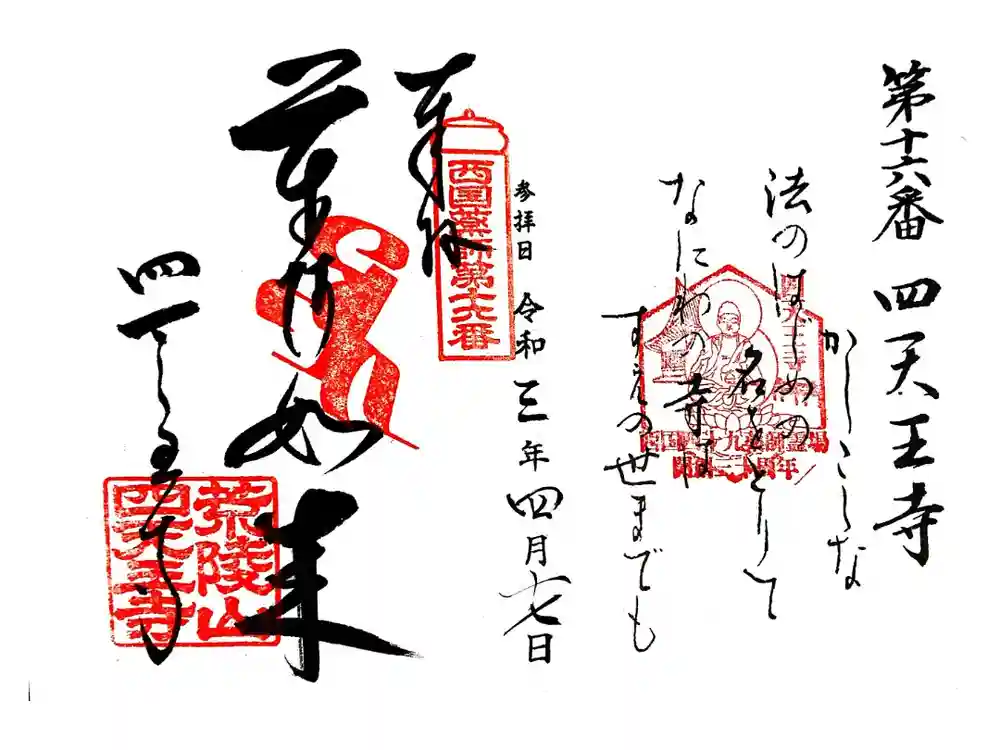 第十六番 四天王寺
かしこしな
法のはじめの
名をとりて
なにわの寺は
すえの世までも
四天王寺
西国四十九薬師霊場
開創三十周年
参拝日 令和三年四月十七日
奉拝
西国薬師第十六番
薬師如来
四天王寺
荒陵山
四天王寺